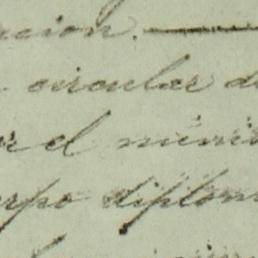 cion.
circular d
r el minis
erpo diplom